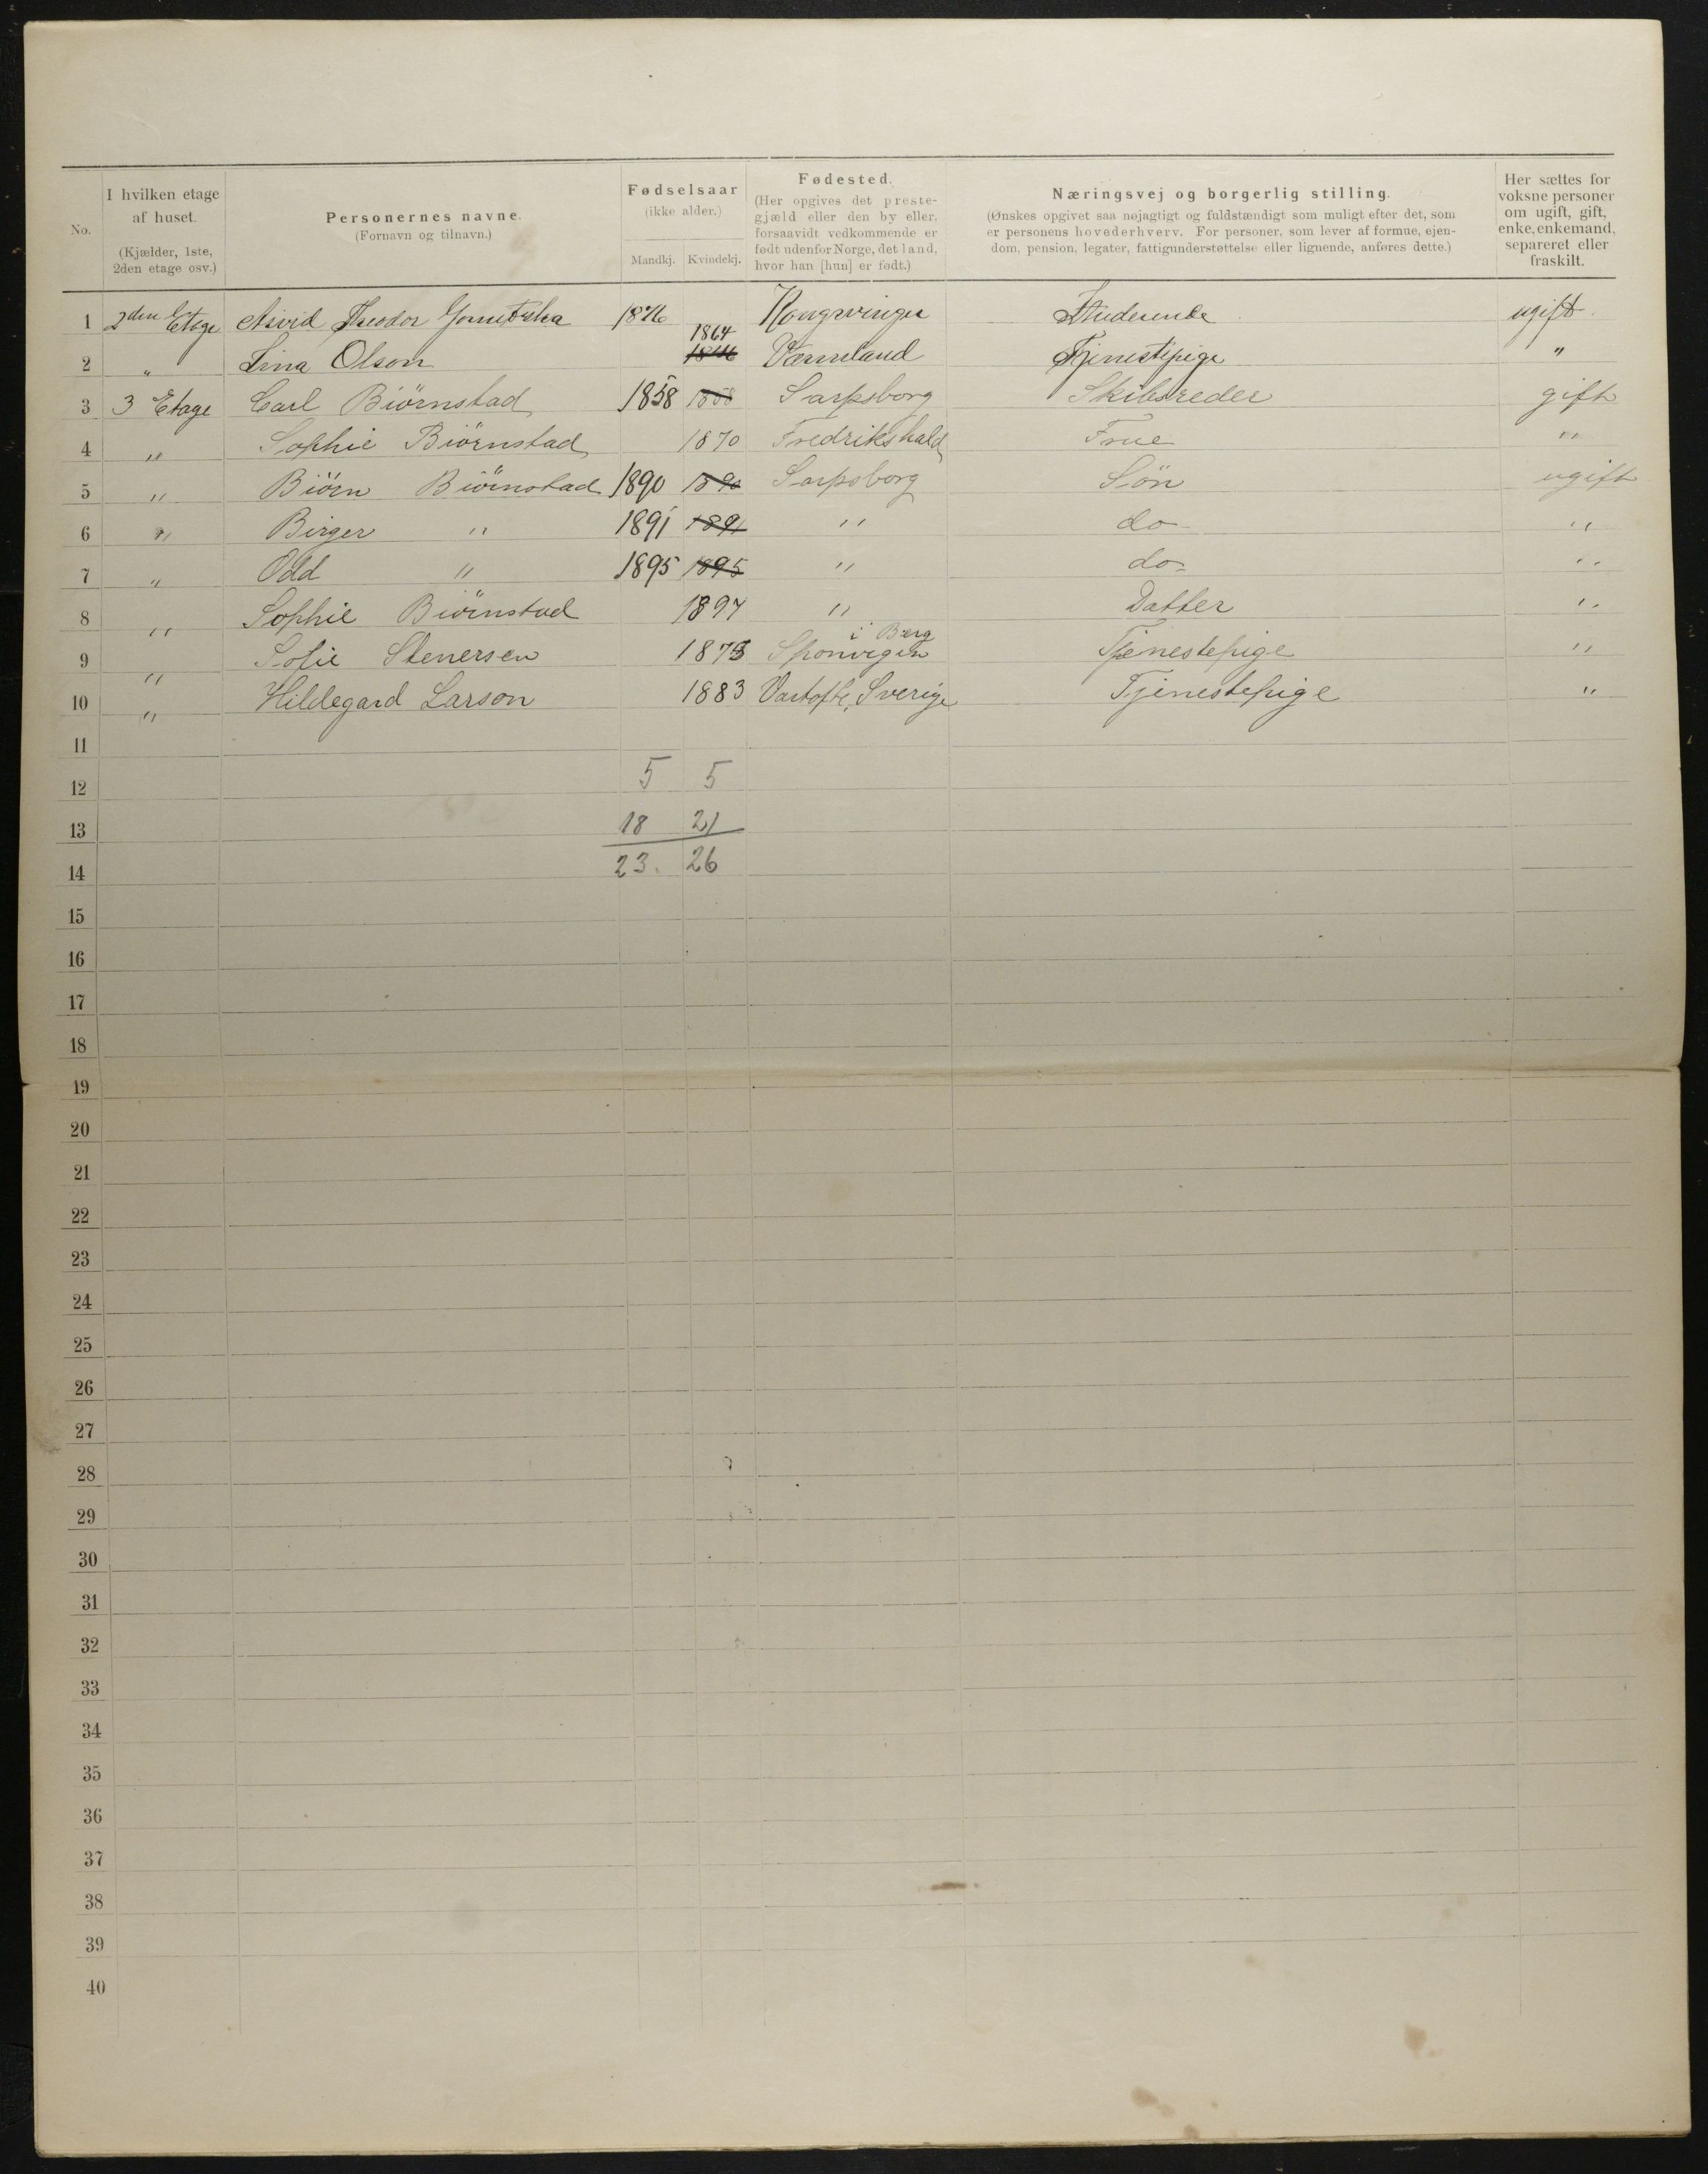 No. | I hvilken etage af huset. (Kjælder, 1ste, 2den etage osv.) | Personernes navne. (Fornavn og tilnavn.) | Fødselsaar (ikke alder.) Mandkj. Kvindekj. | Fødested. (Her opgives det prestegjæld eller den by eller, forsaavidt vedkommende er født udenfor Norge, det land, hvor han [hun] er født.) | Næringsvej og borgerlig stilling. (Ønskes opgivet saa nøjagtigt og fuldstændigt som muligt efter det, som er personens hovederhverv. For personer, som lever af formue, ejendom, pension, legater, fattigunderstøttelse eller lignende, anføres dette.) | Her sættes for voksne personer om ugift, gift, enke, enkemand, separeret eller fraskilt.
1 2den Etage Arvid Theodor 1876 Kongsvinger Studerende ugift
2 " Lina Olson 1864 Værmland Tjenestepige "
3 3 Etage Carl Biörnstad 1858 1858 Sarpsborg Skibsreder gift
4 " Sophie Biörnstad 1870 Fredrikshald Frue "
5 " Biörn Biörnstad 1890 1890 Sarpsborg Sön ugift
6 " Birger " 1891 1891 " do "
7 " Odd " 1895 1895 " do "
8 " Sophie Biörnstad 1897 " Datter "
9 " Sofie Stenersen 1873 Sponvigen i Berg Tjenestepige "
10 " Hildegard Larson 1883 Vartofte, Sverige Tjenestepige "
11
12 5 5
13 18 21
14 23. 26
15
16
17
18
19
20
21
22
23
24
25
26
27
28
29
30
31
32
33
34
35
36
37
38
39
40